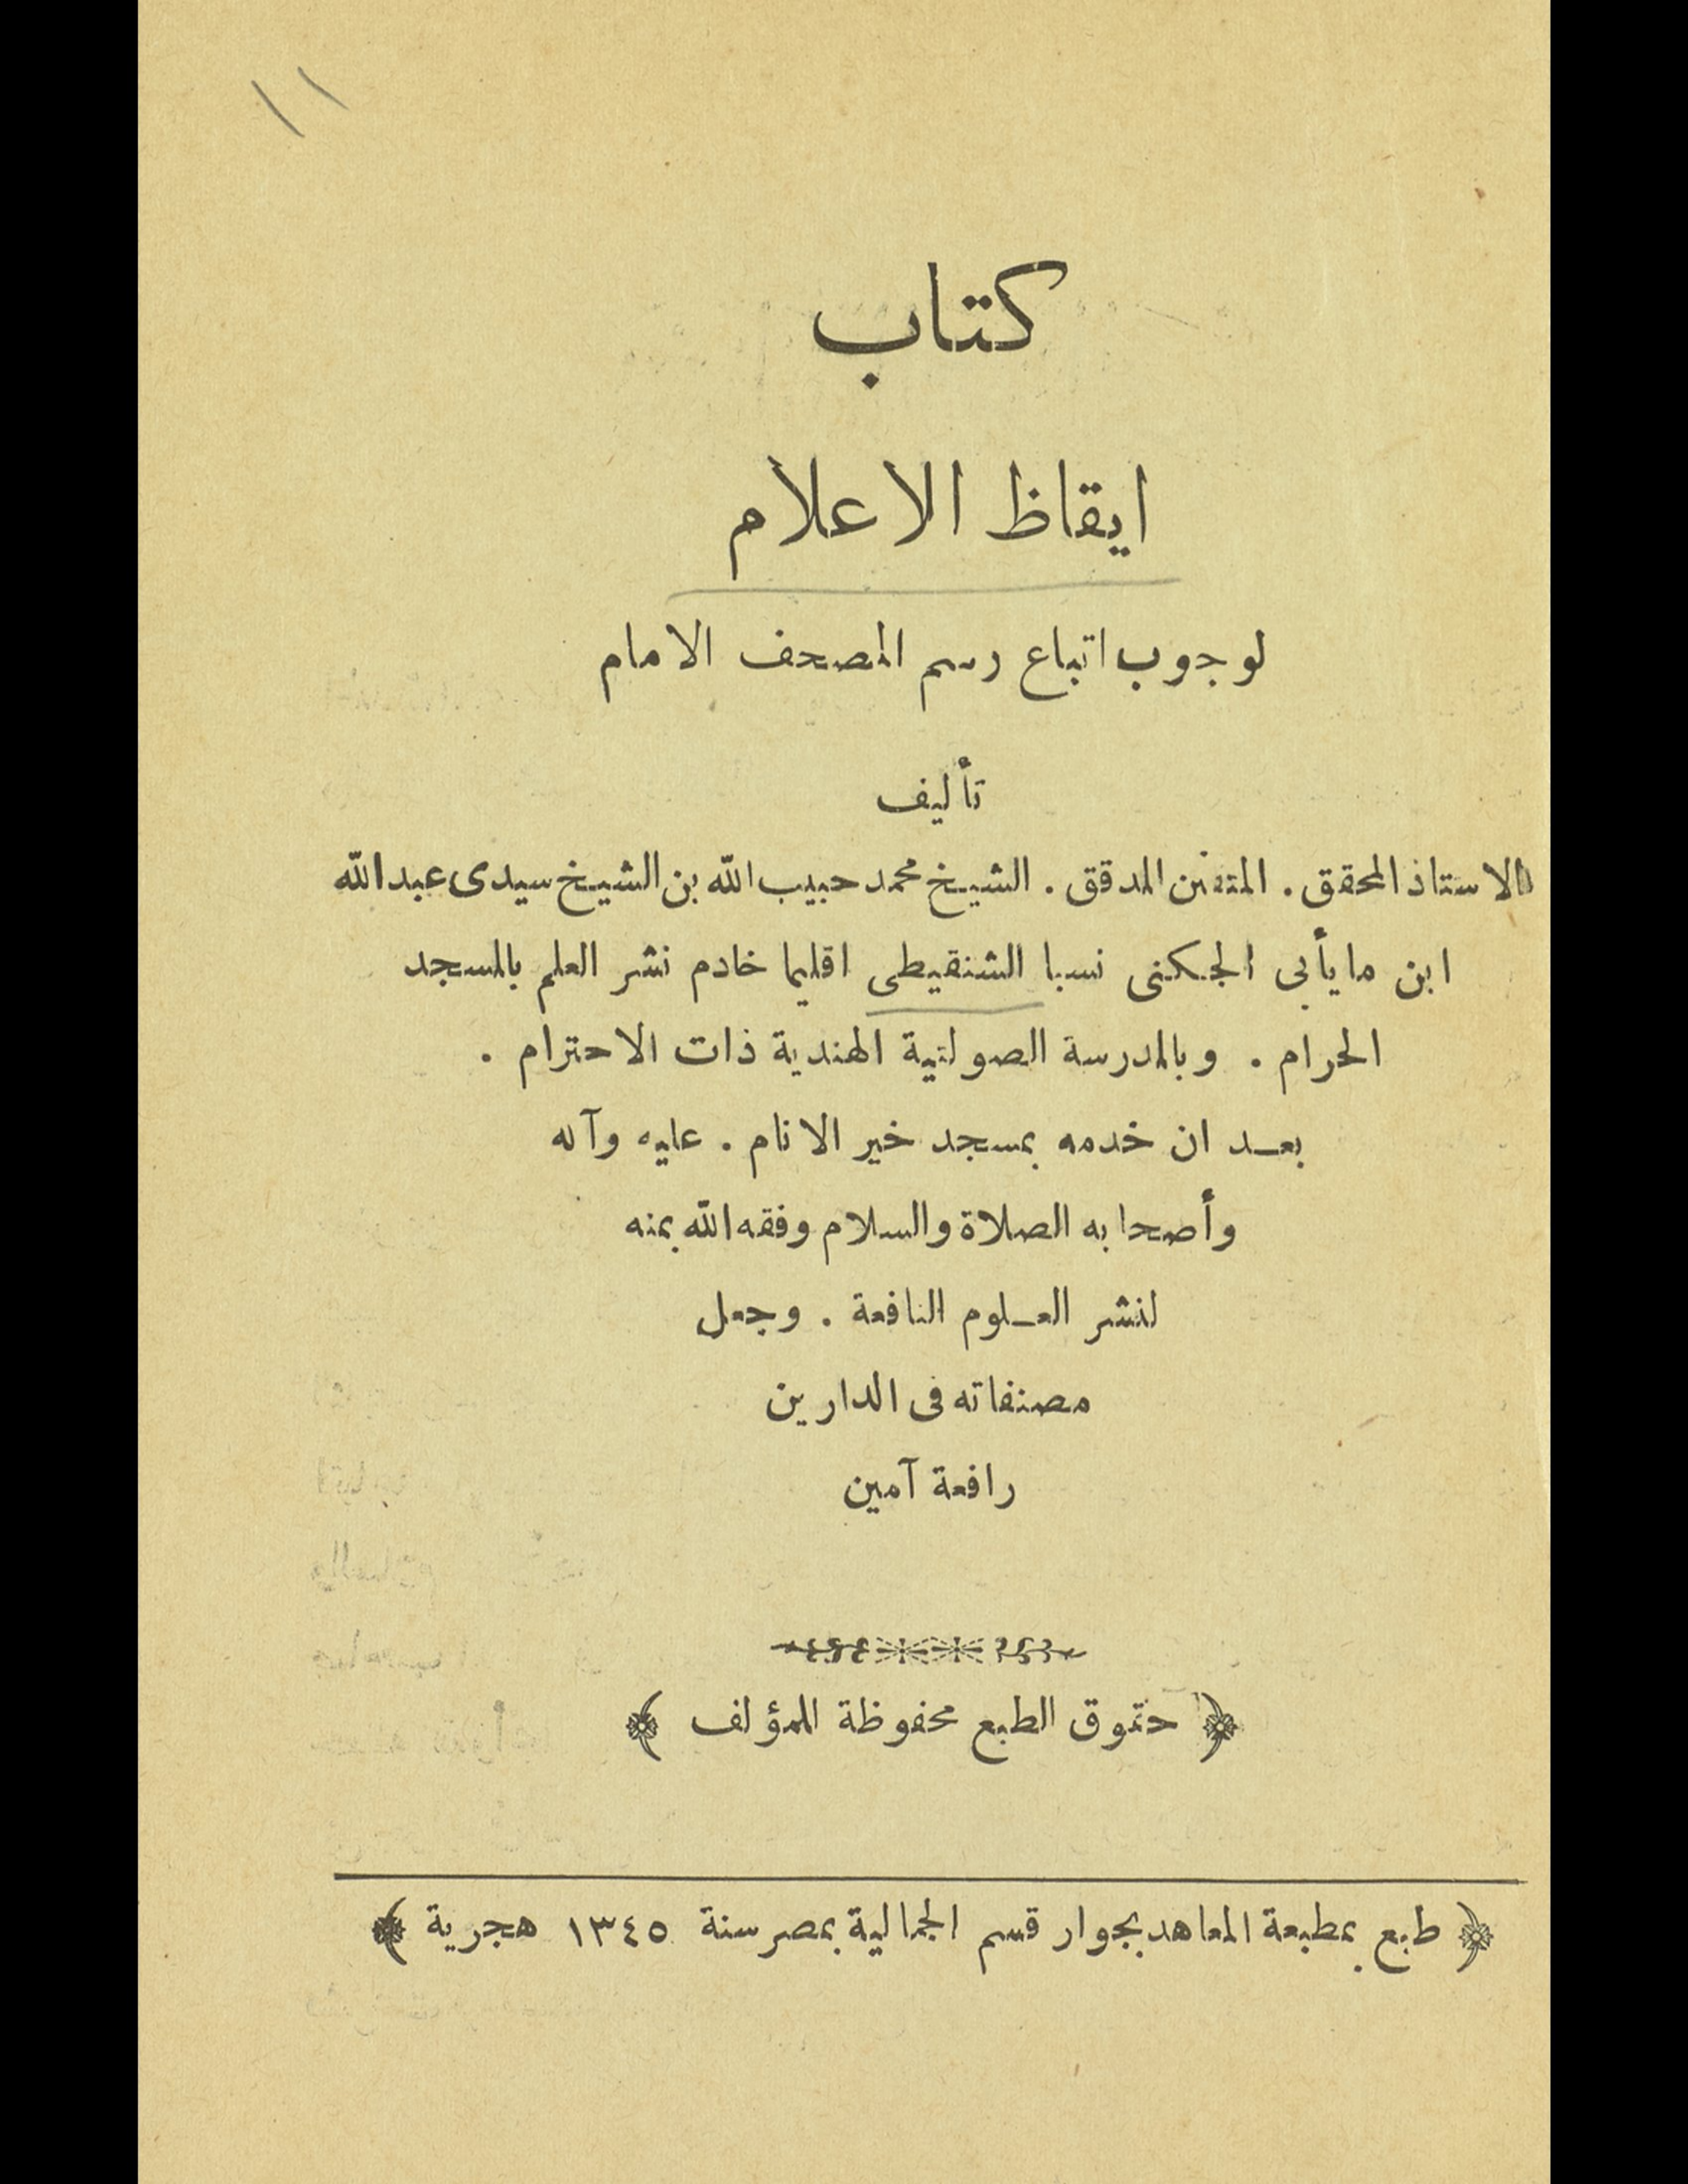 ١١
كتاب
ايقاظ الاعلام
لوجوب اتباع رسم المصحف الامام
تأليف
الاستاذ المحقق . المتفنن المدقق . الشيخ محمد حبيب الله بن الشيخ سيدى عبد الله
ابن مايأبى الجكنى نسبا الشنقيطى اقليما خادم نشر العلم بالمسجد
الحرام . وبالمدرسة الصولتية الهندية ذات الاحترام .
بعد ان خدمه بمسجد خير الانام . عليه وآله
وأصحابه الصلاة والسلام وفقه الله بمنه
لنشر العلوم النافعة . وجعل
مصنفاته فى الدارين
رافعة آمين
﴿ حقوق الطبع محفوظة للمؤلف ﴾
﴿ طبع بمطبعة المعاهد بجوار قسم الجمالية بمصر سنة ١٣٤٥ هجرية ﴾